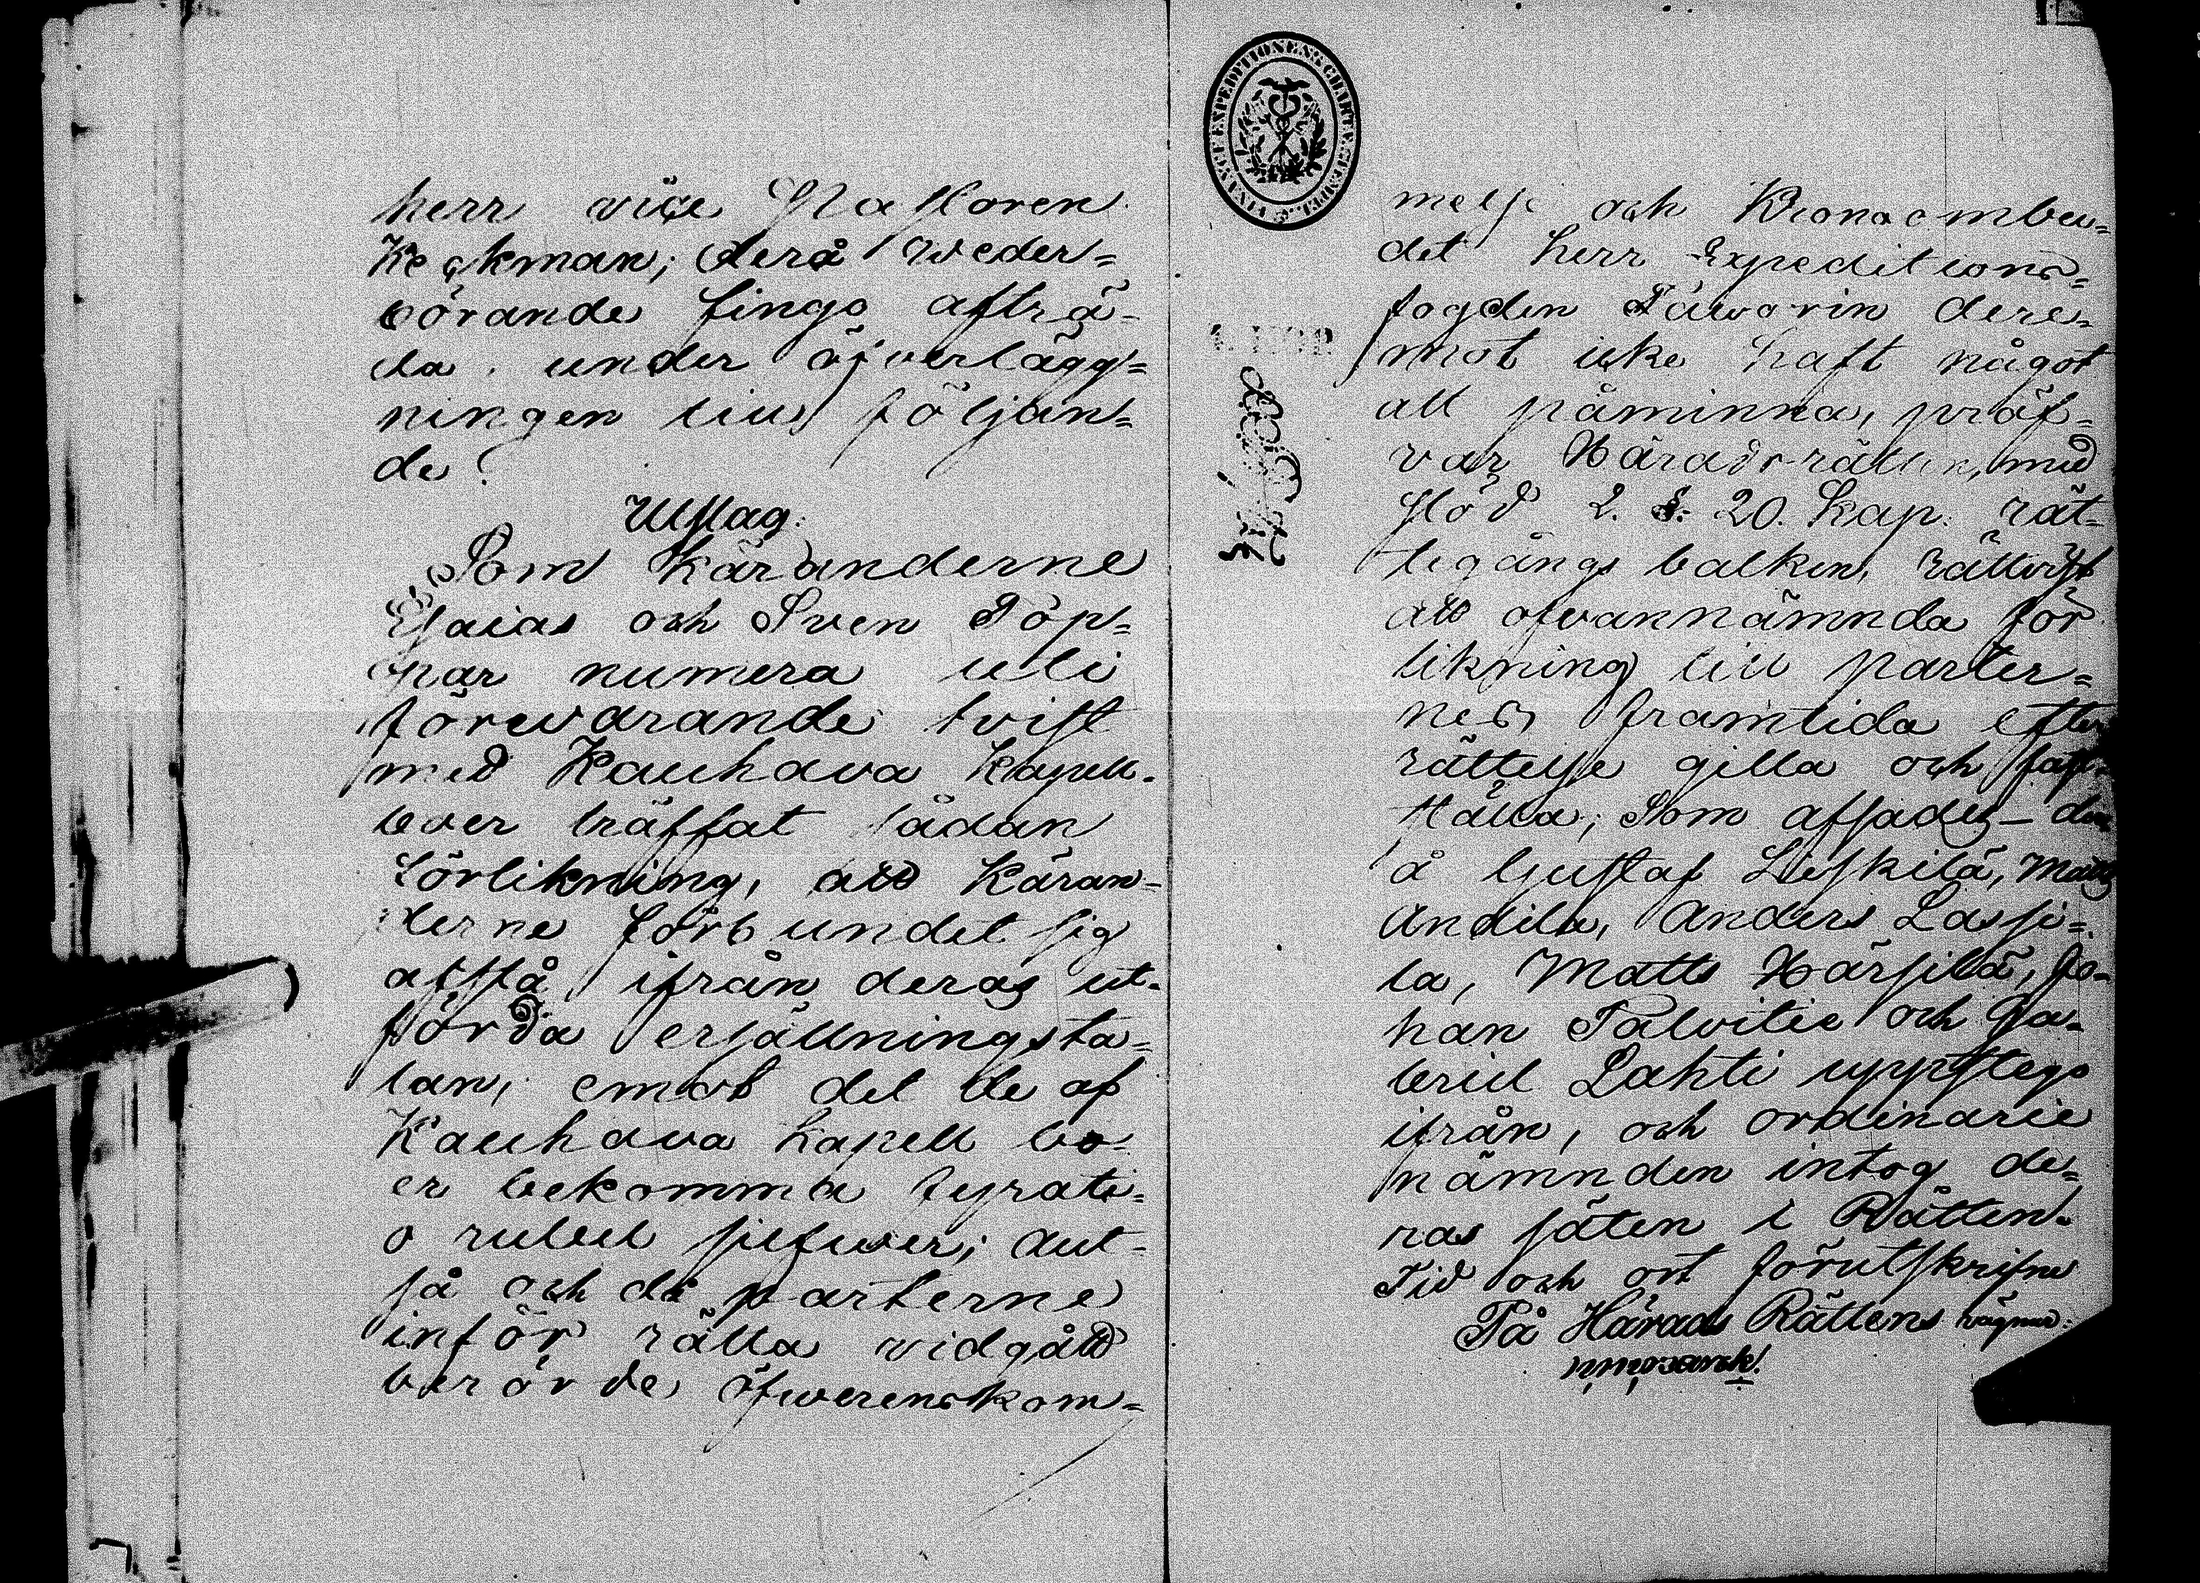 herr vice Pastoren
Keckman; derå weder-
börande fingo afträ-
da. under öfverlägg-
ningen till följan-
de
Utslag:
Som Käranderne
Esaias och Sven Töp-
par numera uti
förewarande tvist
med Kauhava Kapell-
boer träffat sådan
förlikning, att Käran-
derne förbundet sig
afstå ifrån deras ut-
förda ersättningsta-
lan, emot det de af
Kauhava Kapell bo-
er bekomma fyrati-
o rubel silfwer; alt-
så och då parterne
inför rätta vidgått
berörde öfwerenskom-
melse och Kronoombu-
det herr Expeditions-
fogden Täwarin dere-
mot icke haft något
att påminna, pröf-
var Härads-rätten, med
stöd 2. §. 20. Kap. rät-
tegångs balken, rättvist
att ofvannämnda för
likning till parter-
nes framtida efter
rättelse gilla och fast-
ställa; Som afsades — der
å Gustaf Lieskilä, Matts
Andila, Anders Lassi-
la, Matts Härsilä, Jo-
han Talvitie och Ga-
briel Lahti uppstego
ifrån, och ordinarie
nämnden intog de-
ras säten i Rätten.
Tid och ort förutskrifne
På Härads Rättens vägnar:
FINANCE EXPEDITIONENS CHARTÆ STEMPEL